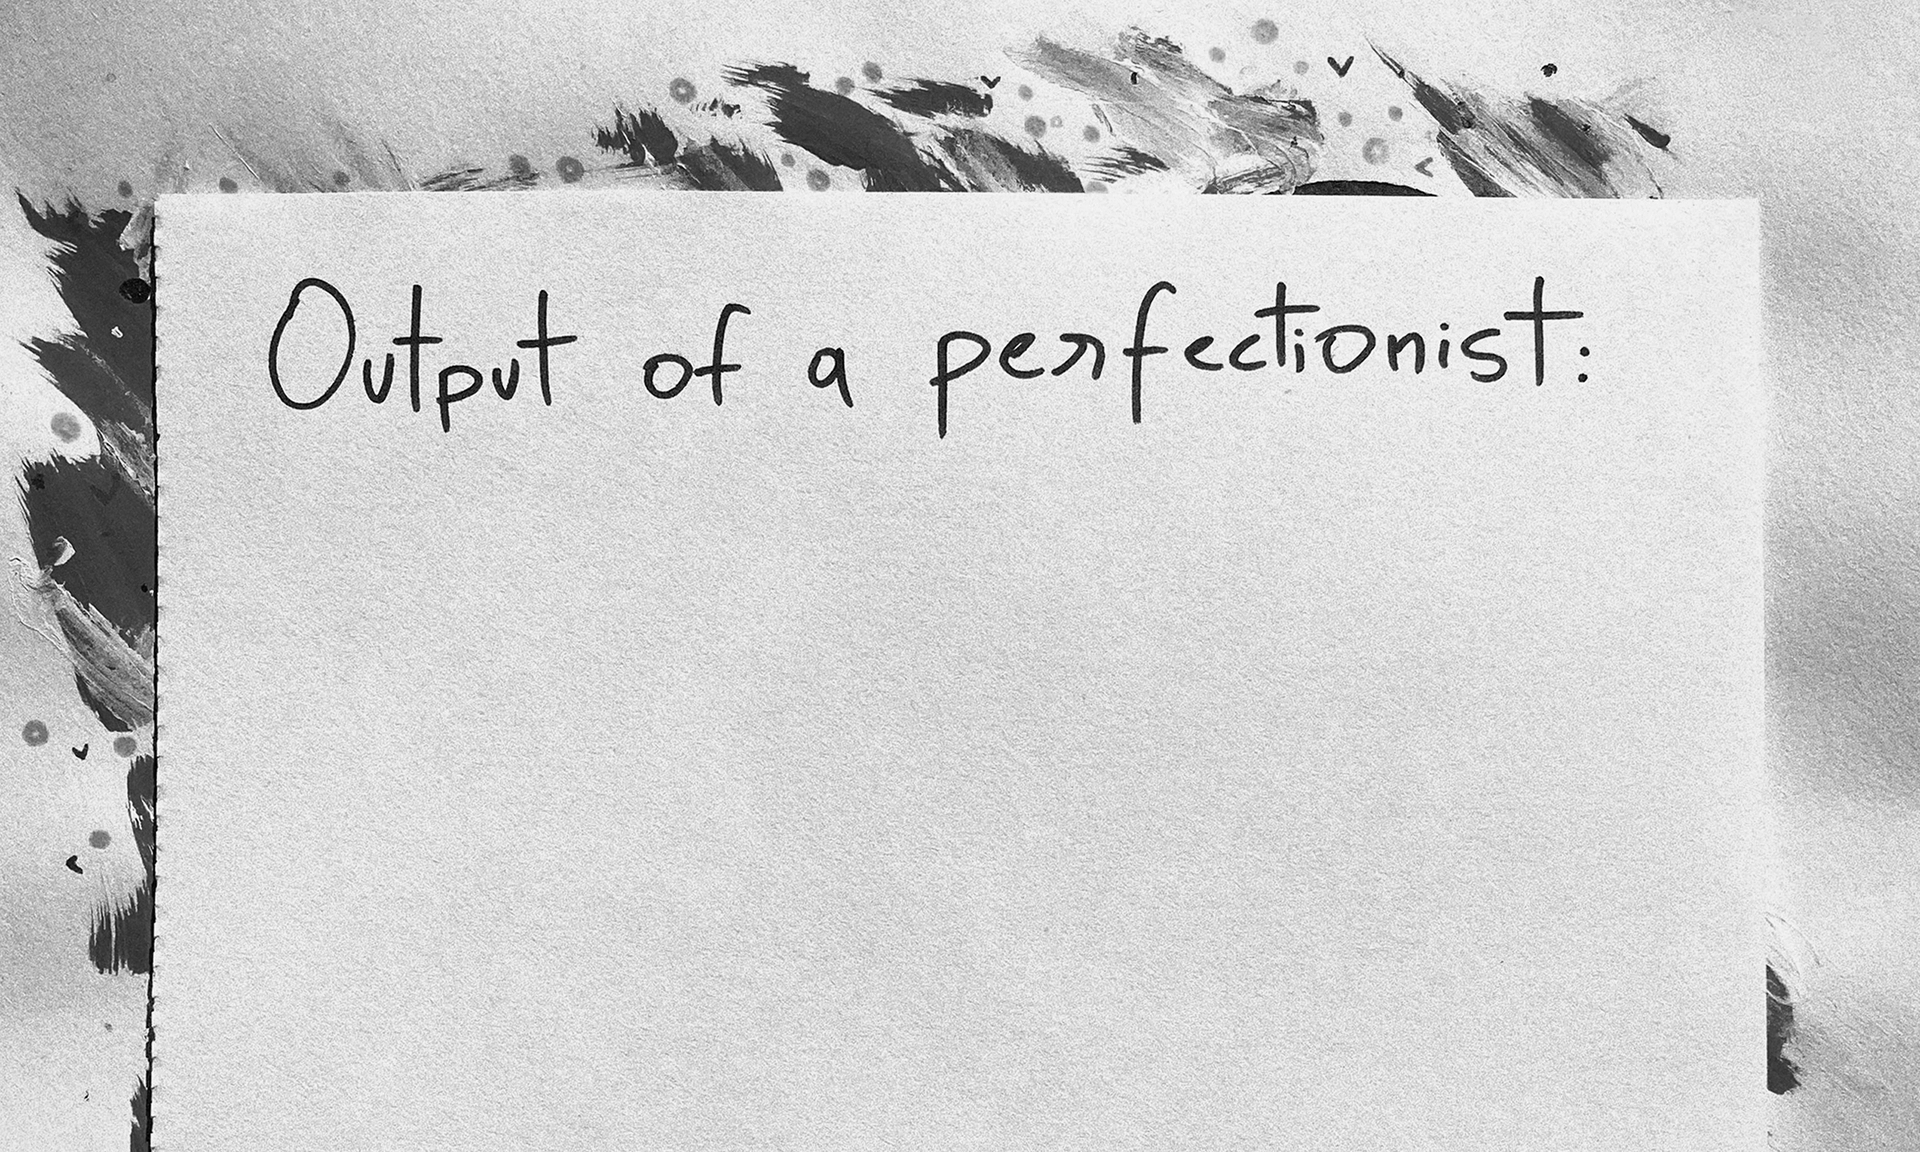 Output of a perfectionist: